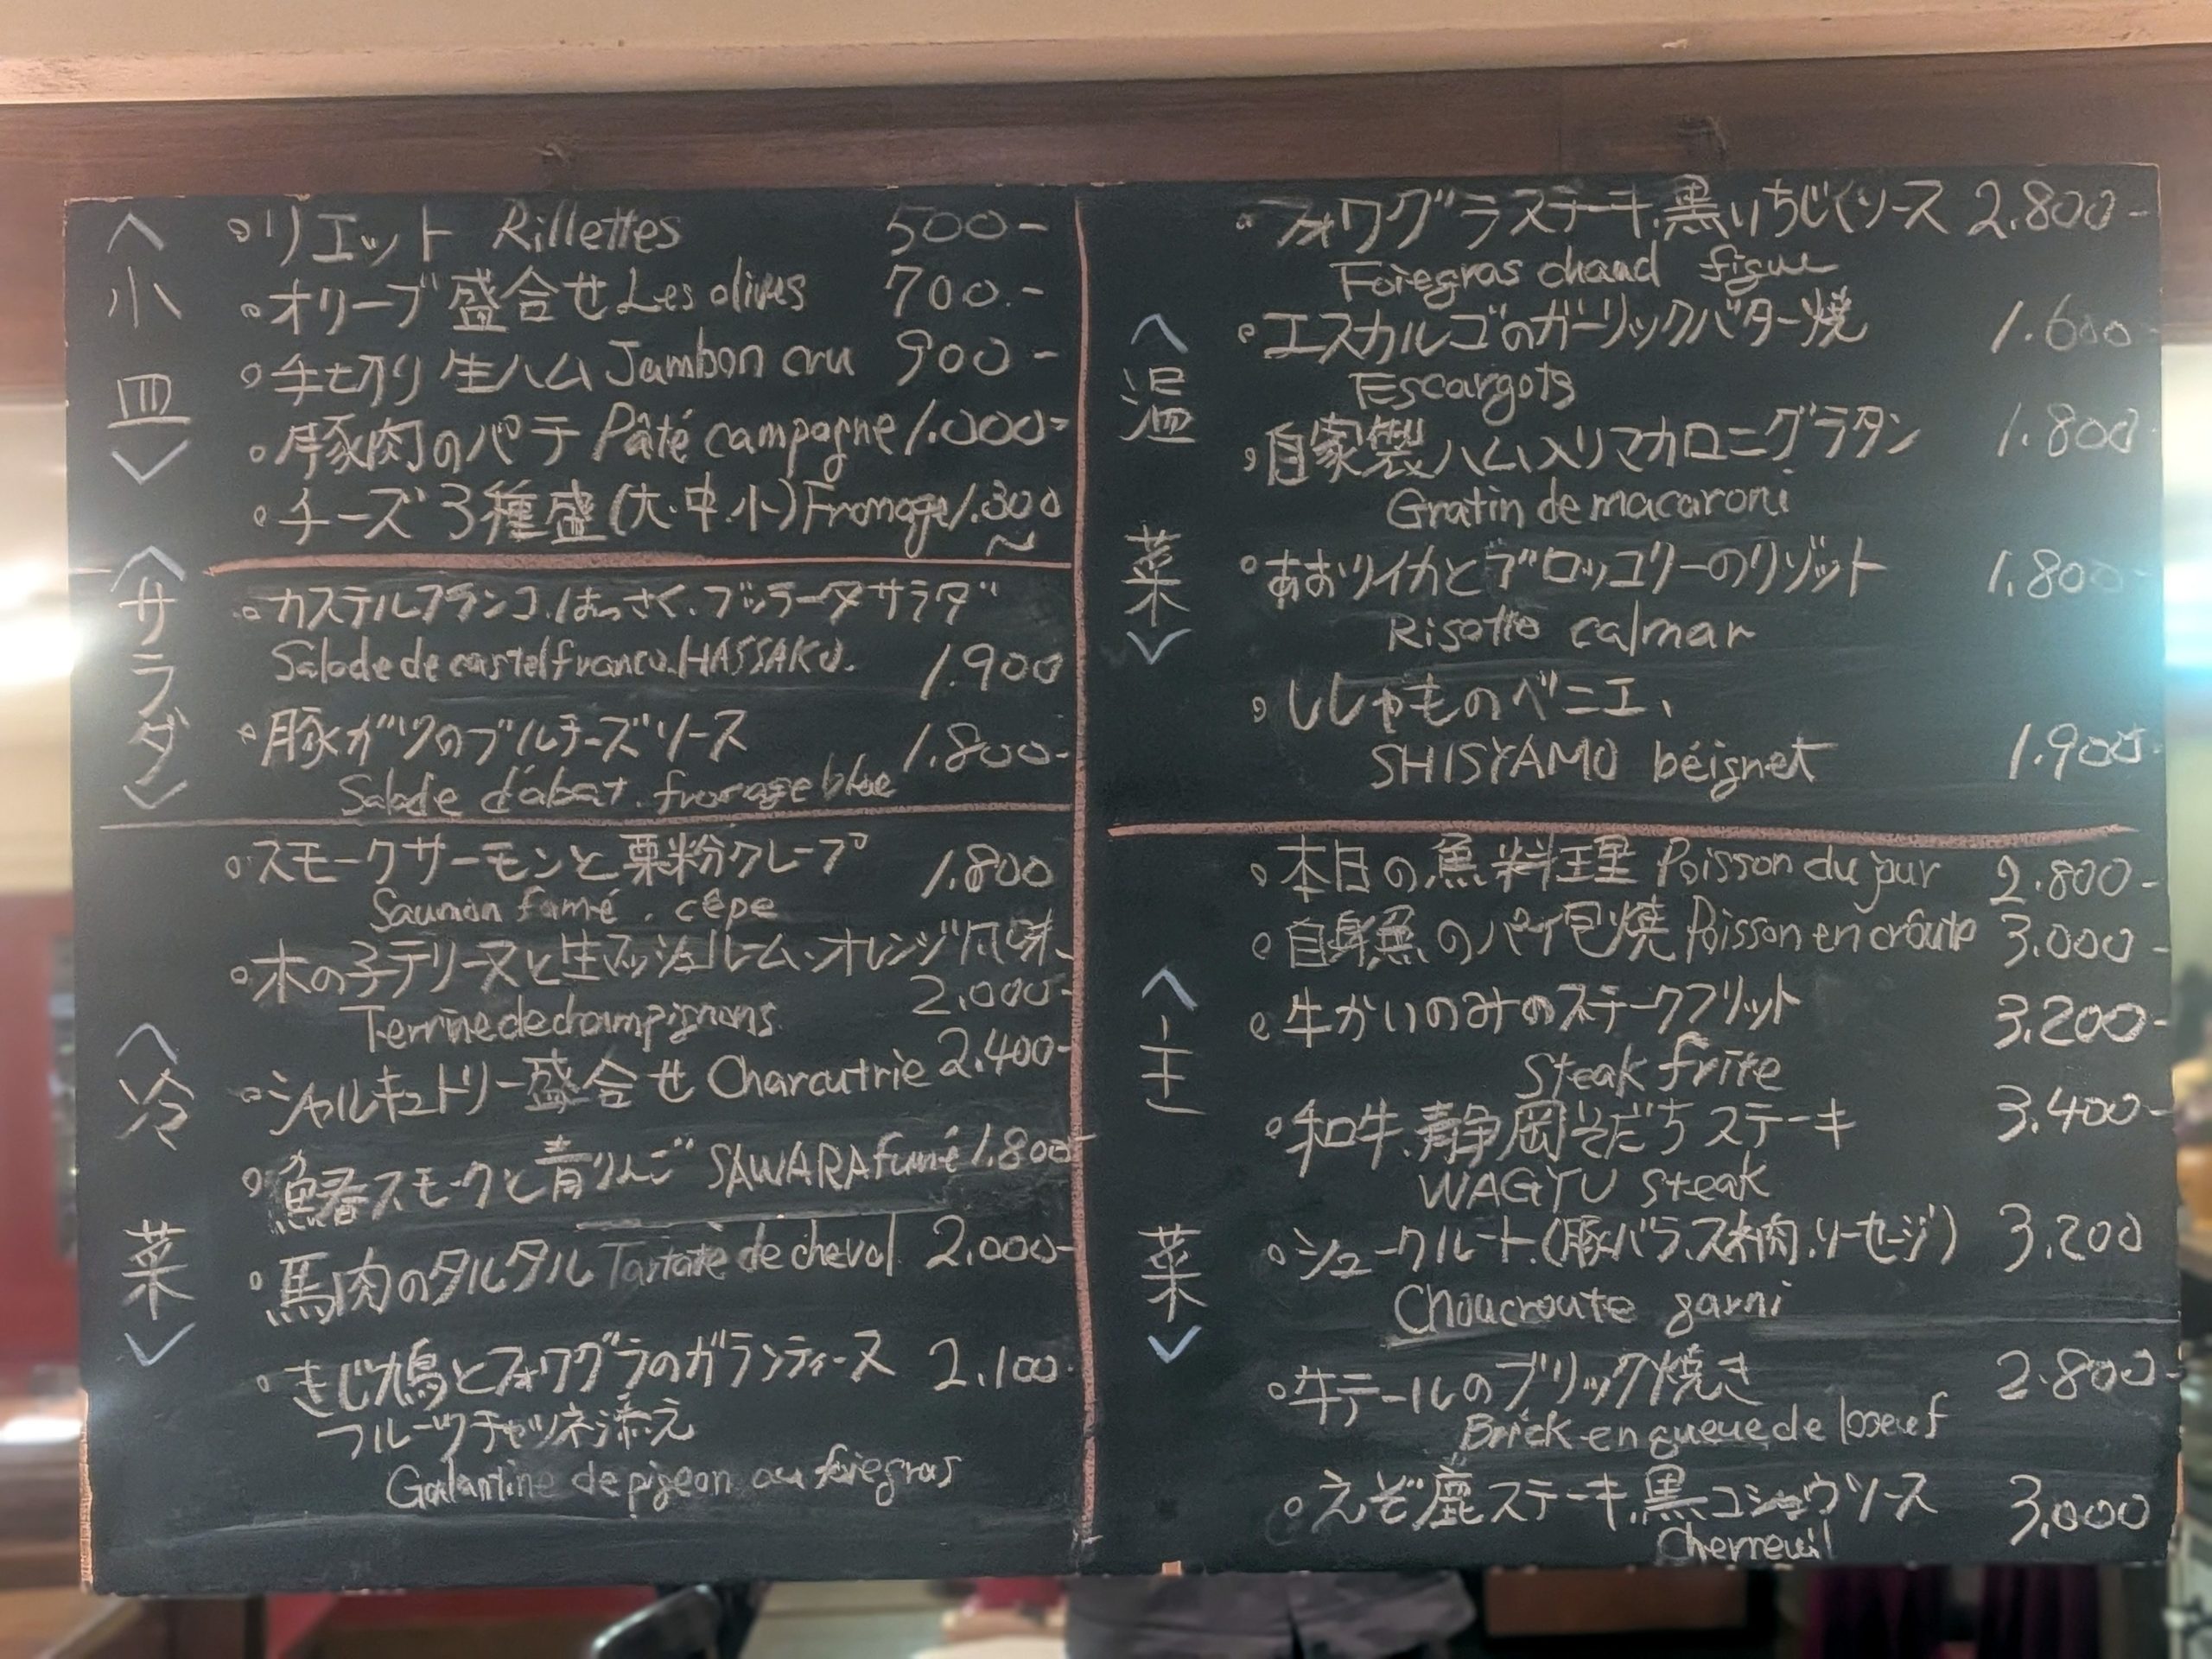 〈小皿〉
・リエット Rillettes 500-
・オリーブ盛合せ Les olives 700.-
・手切り生ハム Jambon cru 900-
・豚肉のパテ Pâté campagne 1.000-
・チーズ3種盛(大.中.小) Fromage 1.300
~
〈サラダ〉
・カステルフランコ.はっさく.ブッラータサラダ
Salade de castelfranco.HASSAKU. 1.900
・豚ガツのブルーチーズソース 1.800-
Salade d'abat. fromage blue
〈冷菜〉
・スモークサーモンと栗粉クレープ 1.800
Saumon fumé. cêpe
・木の子テリーヌと生マッシュルーム、オレンジ風味、
Terrine de champignons 2.000-
・シャルキュトリー盛合せ Charcutrie 2.400-
・鰆スモークと青りんご SAWARA fumé 1.800-
・馬肉のタルタル Tartare de cheval 2.000-
・きじ鳩とフォワグラのガランティーヌ 2.100-
フルーツチャツネ添え
Galantine de pigeon au foiegras
・フォワグラステーキ.黒いちじくソース 2.800-
Foiegras chaud figue
〈温菜〉
・エスカルゴのガーリックバター焼 1.600-
Escargots
・自家製ハム入りマカロニグラタン 1.800
Gratin de macaroni
・あおりイカとブロッコリーのリゾット 1.800-
Risotto calmar
・ししゃものベニエ、
SHISYAMO béignet 1.900-
〈主菜〉
・本日の魚料理 Poisson du jour 2.800-
・白身魚のパイ包焼 Poisson en croute 3.000-
・牛かいのみのステークフリット 3.200-
Steak frite
・和牛.静岡そだちステーキ 3.400-
WAGYU steak
・シュークルート.(豚バラ.スネ肉.ソーセージ) 3.200
Choucroute garni
・牛テールのブリック焼き 2.800-
Brick en queue de boeuf
・えぞ鹿ステーキ.黒コショウソース 3.000
Cherreuil